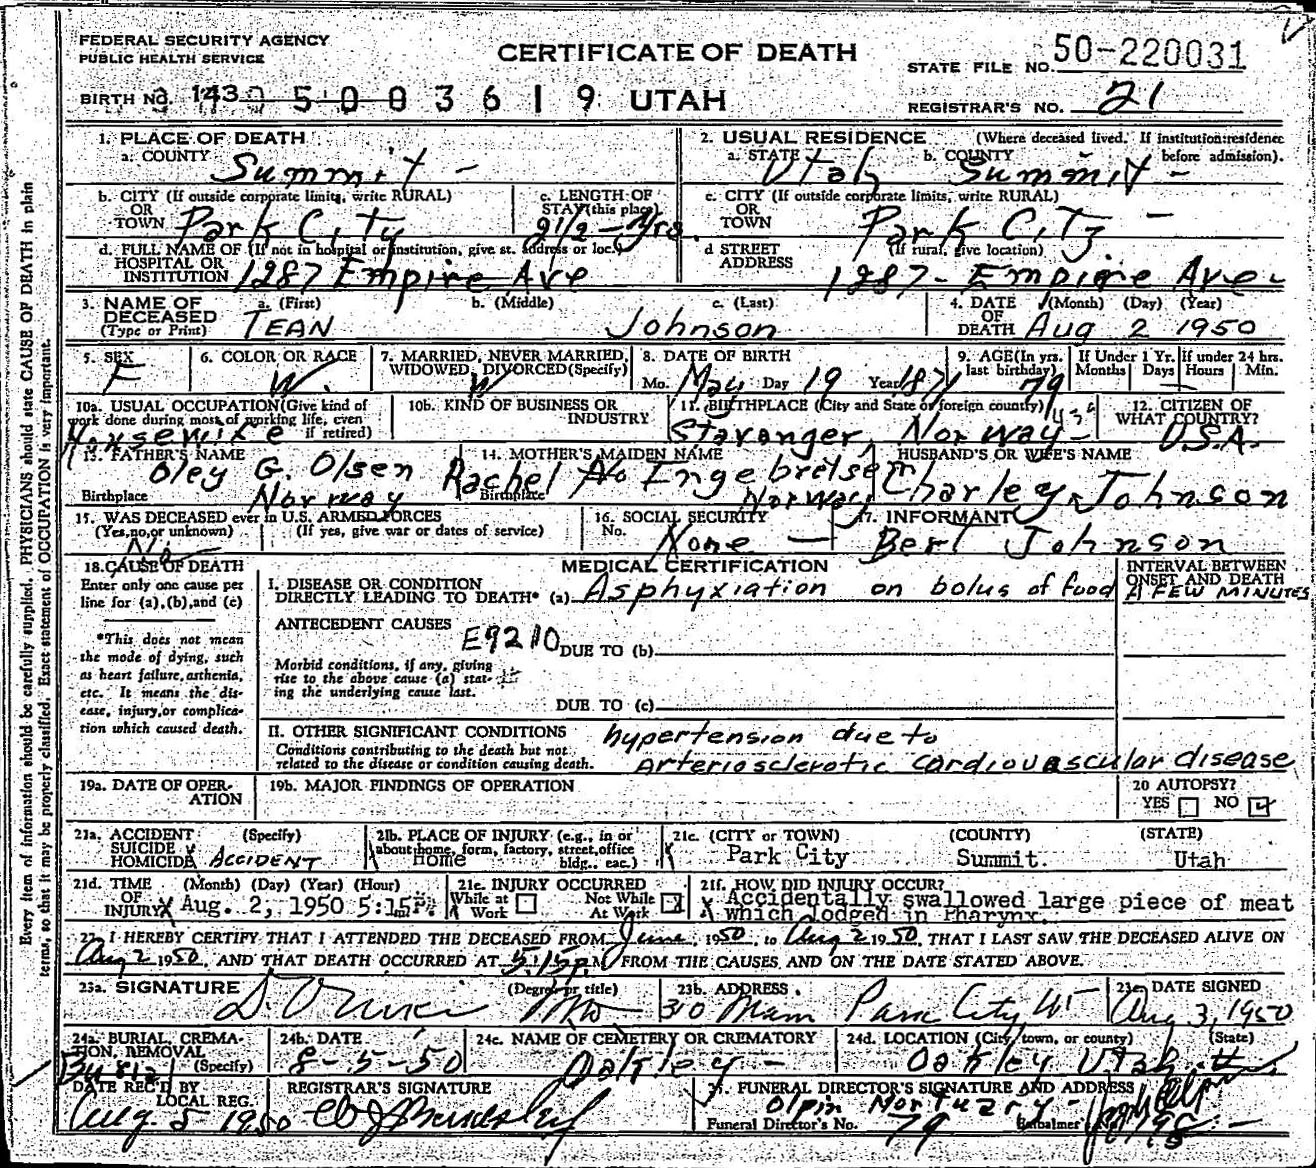 FEDERAL SECURITY AGENCY
PUBLIC HEALTH SERVICE
CERTIFICATE OF DEATH
STATE FILE NO. 50-220031
BIRTH NO. 143 5003619 UTAH
REGISTRAR'S NO. 21
1. PLACE OF DEATH
a. COUNTY Summit -
2. USUAL RESIDENCE (Where deceased lived. If institution: residence before admission).
a. STATE Utah b. COUNTY Summit -
b. CITY (If outside corporate limits, write RURAL) OR TOWN Park City
c. LENGTH OF STAY (this place) 2 1/2 - Yrs.
c. CITY (If outside corporate limits, write RURAL) OR TOWN Park City -
d. FULL NAME OF (If not in hospital or institution, give st. address or loc.) HOSPITAL OR INSTITUTION 1287 Empire Ave
d STREET ADDRESS (If rural, give location) 1287 - Empire Ave -
3. NAME OF DECEASED (Type or Print) a. (First) TEAN b. (Middle) c. (Last) Johnson
4. DATE OF DEATH (Month) (Day) (Year) Aug 2 1950
5. SEX F
6. COLOR OR RACE W.
7. MARRIED, NEVER MARRIED, WIDOWED, DIVORCED (Specify) W
8. DATE OF BIRTH Mo. May Day 19 Year 1871
9. AGE (In yrs. last birthday) 79
If Under 1 Yr. Months Days
If under 24 hrs. Hours Min.
10a. USUAL OCCUPATION (Give kind of work done during most of working life, even if retired) Housewife
10b. KIND OF BUSINESS OR INDUSTRY
11. BIRTHPLACE (City and State or foreign country) Stavanger, Norway -
12. CITIZEN OF WHAT COUNTRY? U.S.A.
13. FATHER'S NAME Oley G. Olsen
Birthplace Norway
14. MOTHER'S MAIDEN NAME Rachel Engebretsen
Birthplace Norway
HUSBAND'S OR WIFE'S NAME Charley Johnson
15. WAS DECEASED ever in U.S. ARMED FORCES (Yes, no, or unknown) (If yes, give war or dates of service) No
16. SOCIAL SECURITY No. None -
17. INFORMANT Bert Johnson
18. CAUSE OF DEATH
Enter only one cause per line for (a), (b), and (c)
*This does not mean the mode of dying, such as heart failure, asthenia, etc. It means the disease, injury, or complication which caused death.
MEDICAL CERTIFICATION
INTERVAL BETWEEN ONSET AND DEATH
I. DISEASE OR CONDITION DIRECTLY LEADING TO DEATH* (a) Asphyxiation on bolus of food A FEW MINUTES
ANTECEDENT CAUSES E9210
DUE TO (b)
Morbid conditions, if any, giving rise to the above cause (a) stating the underlying cause last.
DUE TO (c)
II. OTHER SIGNIFICANT CONDITIONS
Conditions contributing to the death but not related to the disease or condition causing death.
hypertension due to
Arteriosclerotic cardiovascular disease
19a. DATE OF OPERATION
19b. MAJOR FINDINGS OF OPERATION
20 AUTOPSY? YES NO
21a. ACCIDENT SUICIDE HOMICIDE (Specify) ACCIDENT
21b. PLACE OF INJURY (e.g., in or about home, form, factory, street, office bldg., eac.) Home
21c. (CITY or TOWN) (COUNTY) (STATE)
Park City Summit. Utah
21d. TIME OF INJURY (Month) (Day) (Year) (Hour) Aug. 2, 1950 5:15
21e. INJURY OCCURRED While at Work Not While At Work X
21f. HOW DID INJURY OCCUR?
Accidentally swallowed large piece of meat
which lodged in Pharynx.
22. I HEREBY CERTIFY THAT I ATTENDED THE DECEASED FROM June, 1950, to Aug 2 1950, THAT I LAST SAW THE DECEASED ALIVE ON
Aug 2 1950, AND THAT DEATH OCCURRED AT 5:15 P.M FROM THE CAUSES AND ON THE DATE STATED ABOVE.
23a. SIGNATURE (Degree or title)
23b. ADDRESS. 310 Main Park City
23c. DATE SIGNED Aug 3, 1950
24a. BURIAL, CREMATION, REMOVAL (Specify) Burial
24b. DATE 8-5-50
24c. NAME OF CEMETERY OR CREMATORY Oakley -
24d. LOCATION (City, town, or county) (State) Oakley Utah
DATE REC'D BY LOCAL REG. Aug 5 1950
REGISTRAR'S SIGNATURE
25. FUNERAL DIRECTOR'S SIGNATURE AND ADDRESS
Olpin Mortuary -
Funeral Director's No. 79 Embalmer's No.
Every item of information should be carefully supplied. PHYSICIANS should state CAUSE OF DEATH in plain
terms, so that it may be properly classified. Exact statement of OCCUPATION is very important.